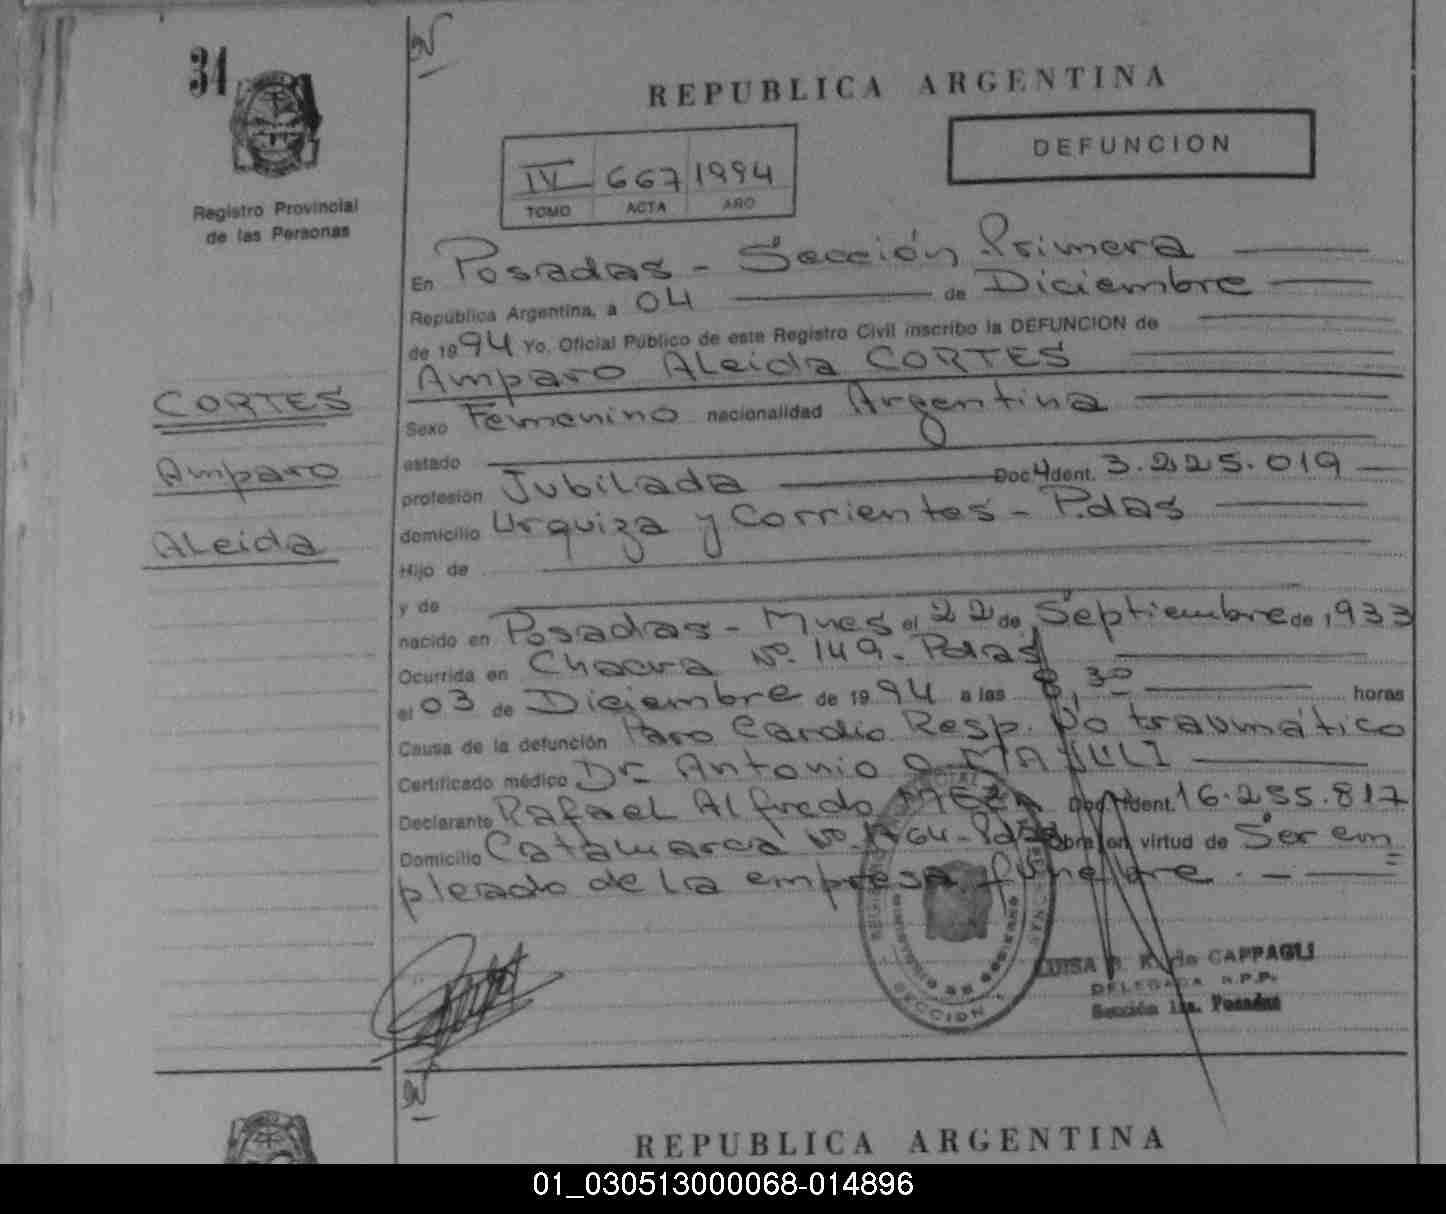 31
REPUBLICA ARGENTINA
DEFUNCION
IV 667 1994
TOMO ACTA AÑO
Registro Provincial
de las Personas
En Posadas - Sección Primera
República Argentina, a 04 de Diciembre
de 1994 Yo, Oficial Público de este Registro Civil inscribo la DEFUNCION de
Amparo Aleida CORTES
CORTES
Amparo
Aleida
Sexo Femenino nacionalidad Argentina
estado
profesión Jubilada Doc. Ident. 3.225.019
domicilio Urquiza y Corrientes - Pdas
Hijo de
y de
nacido en Posadas - Mnes el 22 de Septiembre de 1933
Ocurrida en Chacra Nº 149 - Pdas
el 03 de Diciembre de 1994 a las 8,30 horas
Causa de la defunción Paro Cardio Resp. No traumático
Certificado médico Dr. Antonio O.
Declarante Rafael Alfredo Doc. Ident. 16.255.817
Domicilio Catamarca Nº Obra en virtud de Ser em
pleado de la empresa funebre. -
SECCION 1
LUISA K. de CAPPAGLI
DELEGADA R.P.P.
Sección 1a. Posadas
REPUBLICA ARGENTINA
01_030513000068-014896